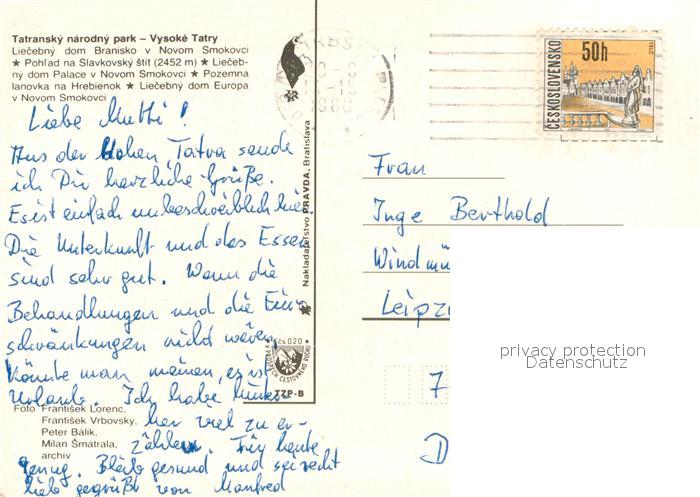 Tatranský národný park – Vysoké Tatry
Liečebný dom Branisko v Novom Smokovci
★ Pohľad na Slavkovský štít (2452 m) ★ Liečeb-
ný dom Palace v Novom Smokovci ★ Pozemna
lanovka na Hrebienok ★ Liečebný dom Europa
v Novom Smokovci
Liebe Mutti!
Aus der Hohen Tatra sende
ich Dir herzliche Grüße.
Es ist einfach unbeschreiblich hier.
Die Unterkunft und das Essen
sind sehr gut. Wenn die
Behandlungen und die Ein-
schränkungen nicht wären,
könnte man meinen, es ist
Urlaub. Ich habe hinter-
her viel zu er-
zählen. Für heute
genug. Bleib gesund und sei recht
lieb gegrüßt von Manfred
Foto František Lorenc,
František Vrbovsky,
Peter Bálik,
Milan Šmátrala,
archiv
Nakladateľstvo PRAVDA, Bratislava
čs 020
TZP-B
ČESKOSLOVENSKO
50h
TELČ
Frau
Inge Berthold
Windmü
Leipz
7
D
privacy protection
Datenschutz